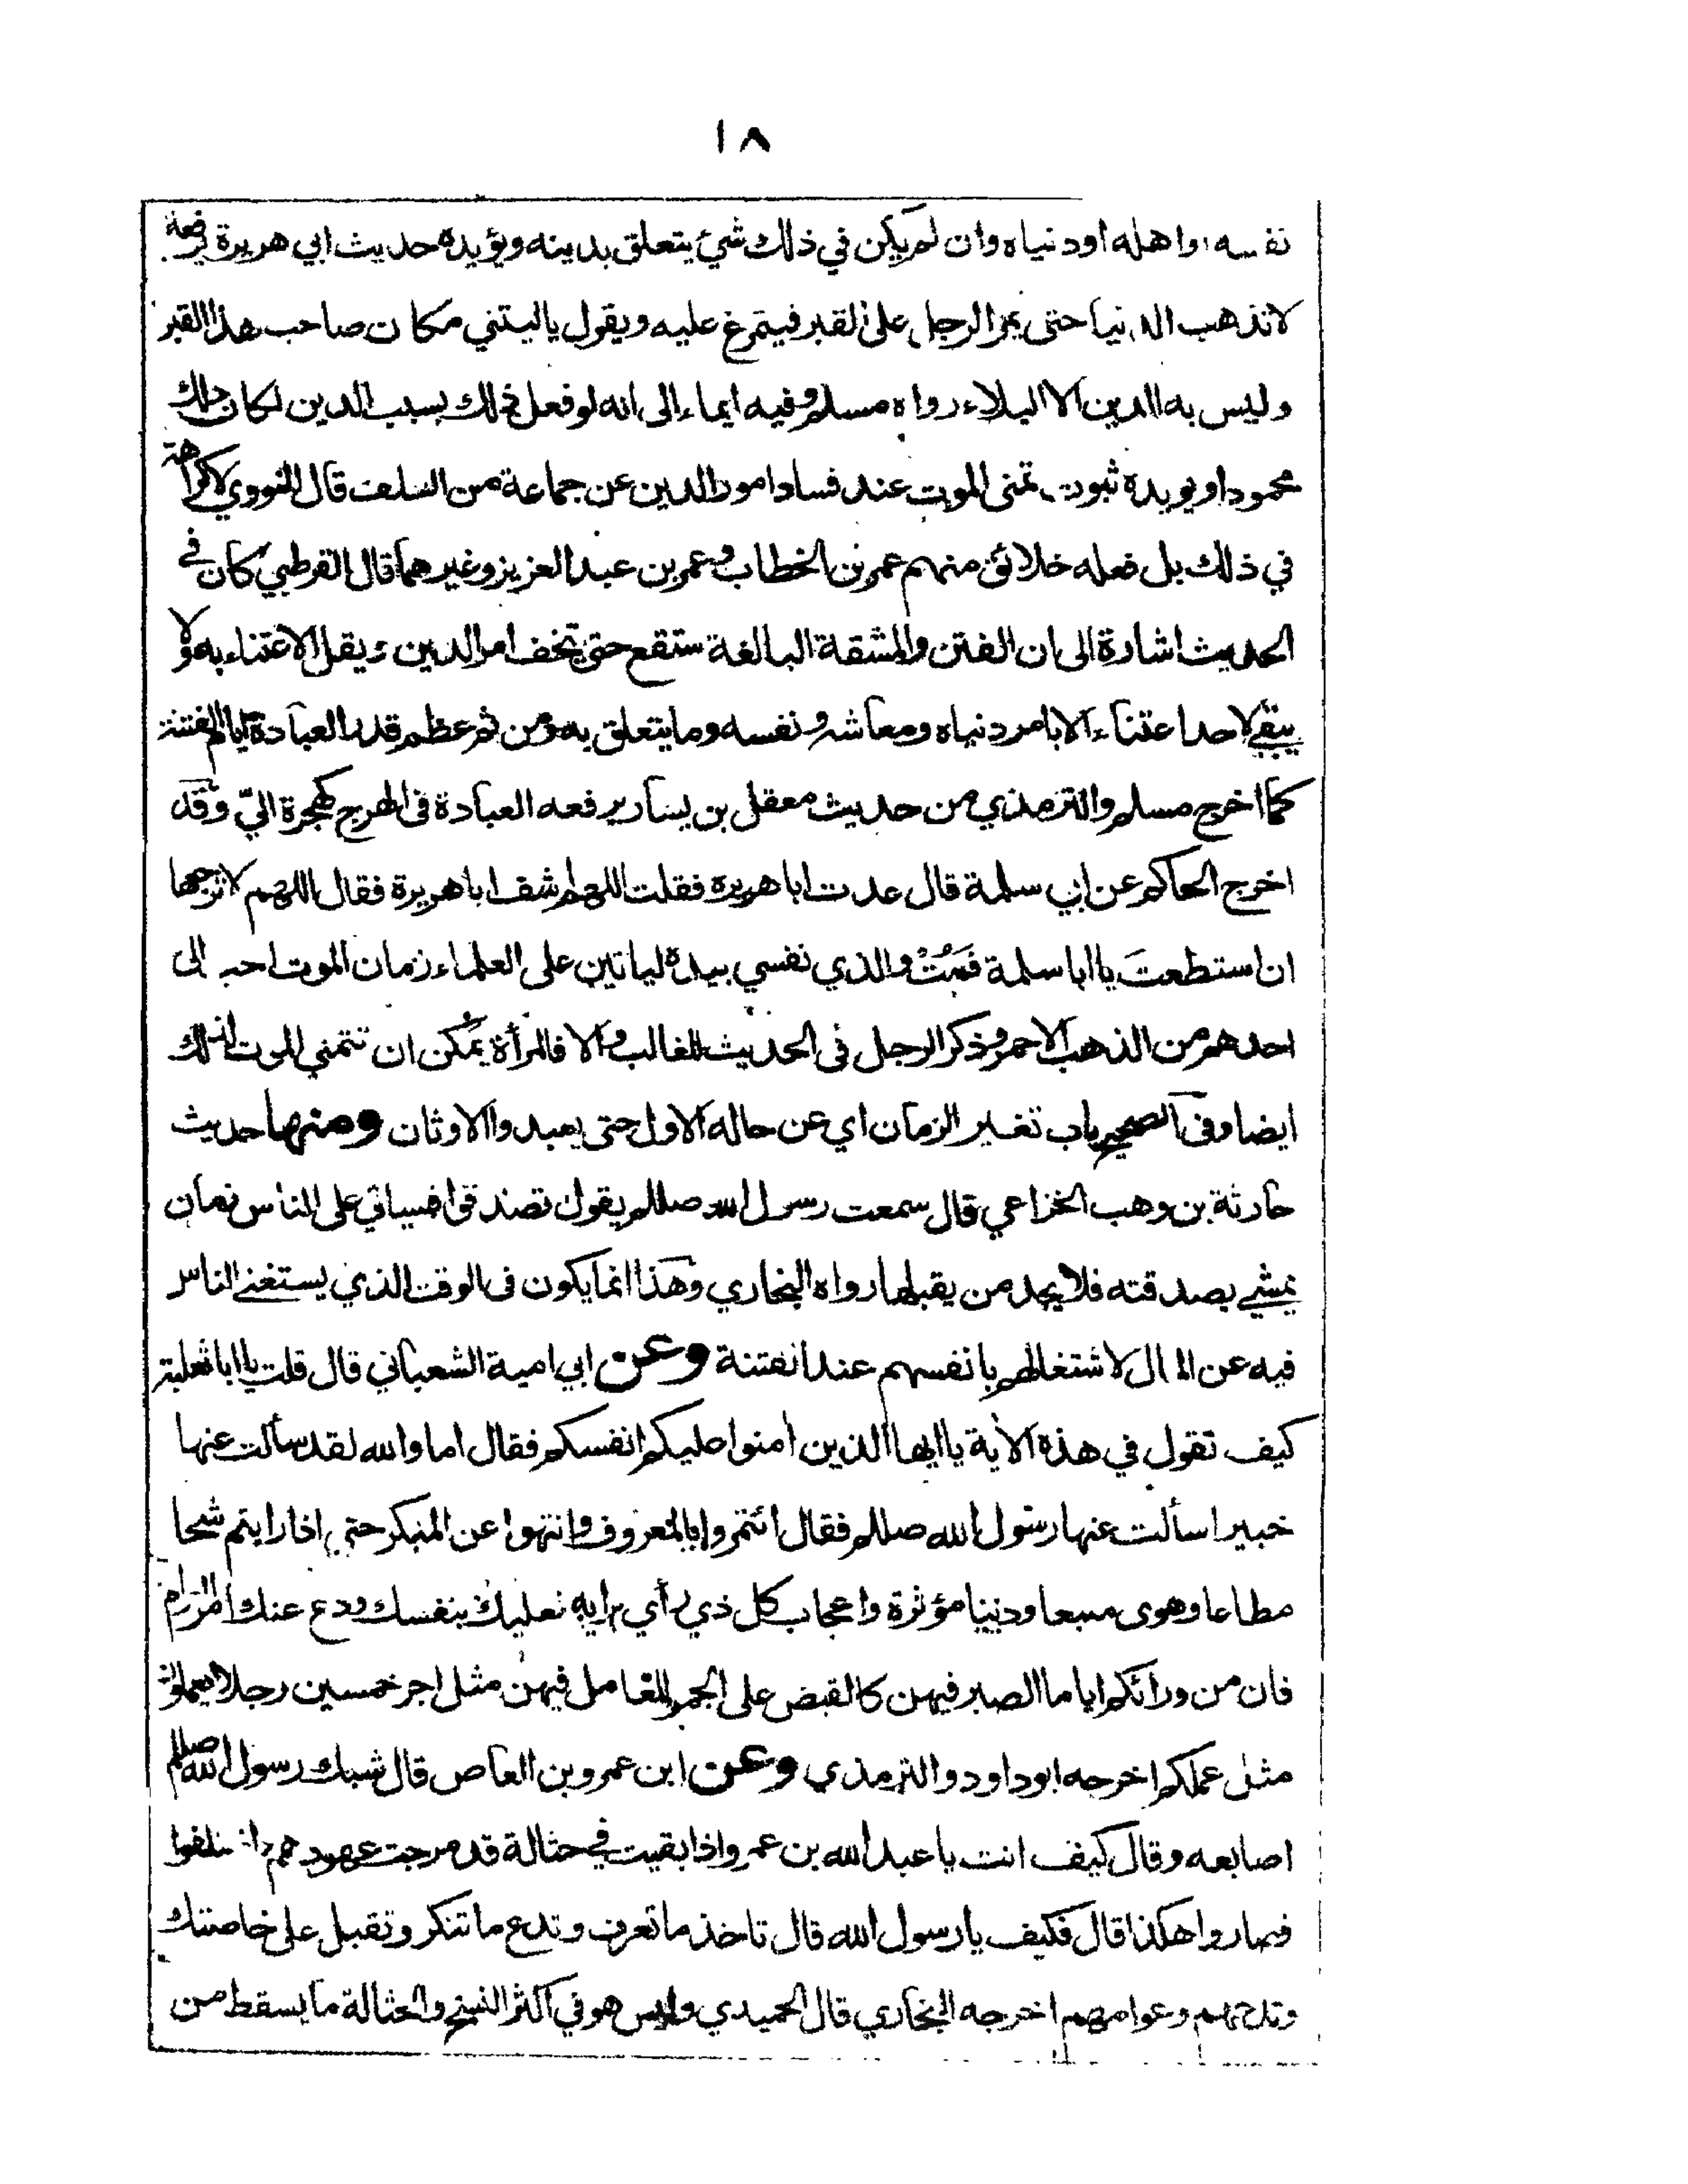 ١٨
نفسه او اهله او دنياه وان لم يكن في ذلك شيئ يتعلق بدينه ويؤيده حديث ابي هريرة رفعه
لا تذهب الدنيا حتى يمر الرجل على القبر فيتمرغ عليه ويقول يا ليتني مكان صاحب هذا القبر
وليس به الدين الا البلاء رواه مسلم وفيه ايماء الى انه لو فعل ذلك بسبب الدين لكان ذلك
محمودا ويويده ثبوت تمنى الموت عند فساد امور الدين عن جماعة من السلف قال النووي لا كراهة
في ذلك بل فعله خلائق منهم عمر بن الخطاب وعمر بن عبد العزيز وغيرهما قال القرطبي كان في
الحديث اشارة الى ان الفتن والمشقة البالغة ستقع حتى يخف امر الدين ويقل الاعتناء به ولا
يبقى لاحد اعتناء الا بامر دنياه ومعاشه ونفسه وما يتعلق به ومن ثم عظم قدر العبادة ايام الفتنة
كما اخرج مسلم والترمذي من حديث معقل بن يسار يرفعه العبادة فى الهرج كهجرة اليّ وقد
اخرج الحاكم عن ابي سلمة قال عدت ابا هريرة فقلت اللهم اشف ابا هريرة فقال اللهم لا ترجعها
ان استطعتَ يا ابا سلمة فمُتْ والذي نفسي بيده لياتين على العلماء زمان الموت احب الى
احدهم من الذهب الاحمر وذكر الرجل فى الحديث للغالب والا فالمرأة يمكن ان تتمني الموت لذلك
ايضا وفى الصحيح باب تغير الزمان اي عن حاله الاول حتى يعبدوا الاوثان ومنها حديث
حارثة بن وهب الخزاعي قال سمعت رسول الله صللم يقول تصدقوا فسياتي على الناس زمان
يمشي بصدقته فلا يجد من يقبلها رواه البخاري وهذا انما يكون فى الوقت الذي يستغنى الناس
فيه عن المال لاشتغالهم بانفسهم عند الفتنة وعن ابي امية الشعباني قال قلت يا ابا ثعلبة
كيف تقول في هذه الآية يا ايها الذين امنوا عليكم انفسكم فقال اما والله لقد سألت عنها
خبيرا سألت عنها رسول الله صللم فقال ائتمروا بالمعروف وانتهوا عن المنكر حتى اذا رايتم شحا
مطاعا وهوى متبعا ودنيا مؤثرة واعجاب كل ذي رأي برايه فعليك بنفسك ودع عنك امر العوام
فان من ورائكم اياما الصبر فيهن كالقبض على الجمر للعامل فيهن مثل اجر خمسين رجلا يعملون
مثل عملكم اخرجه ابو داود والترمذي وعن ابن عمرو بن العاص قال شبك رسول الله صللم
اصابعه وقال كيف انت يا عبد الله بن عمرو اذا بقيت في حثالة قد مرجت عهودهم واختلفوا
فصاروا هكذا قال فكيف يا رسول الله قال تاخذ ما تعرف وتدع ما تنكر وتقبل على خاصتك
وتدعهم وعوامهم اخرجه البخاري قال الحميدي وليس هو في اكثر النسخ والحثالة ما يسقط من